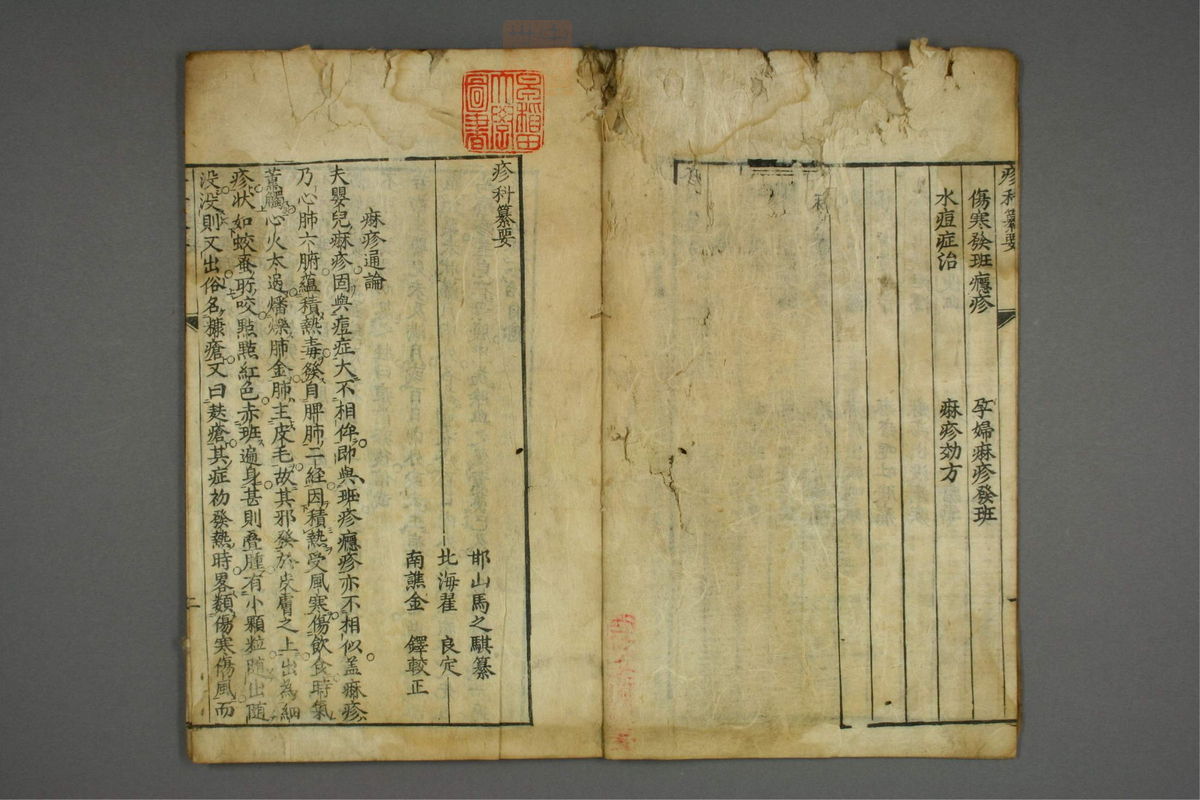 疹科纂要
傷寒發班癮疹　孕婦痳疹發班
水痘症治　痳疹効方
疹科纂要
邯山馬之騏纂
北海翟　良定
南譙金　鐸較正
痳疹通論
夫嬰兒痳疹固與痘症大不相侔即與班疹癮疹亦不相似盖痳疹
乃心肺六腑蘊積熱毒發自脾肺二経因積熱受風寒傷飲食時氣
薰觸心火太過燔爍肺金肺主皮毛故其邪發於皮膚之上出為細
疹状如蛟蚤所咬點點紅色赤班遍身甚則疊腫有小顆粒随出随
没没則又出俗名糠瘡又曰麸瘡其症初發熱時畧類傷寒傷風而
早稲田大學圖書